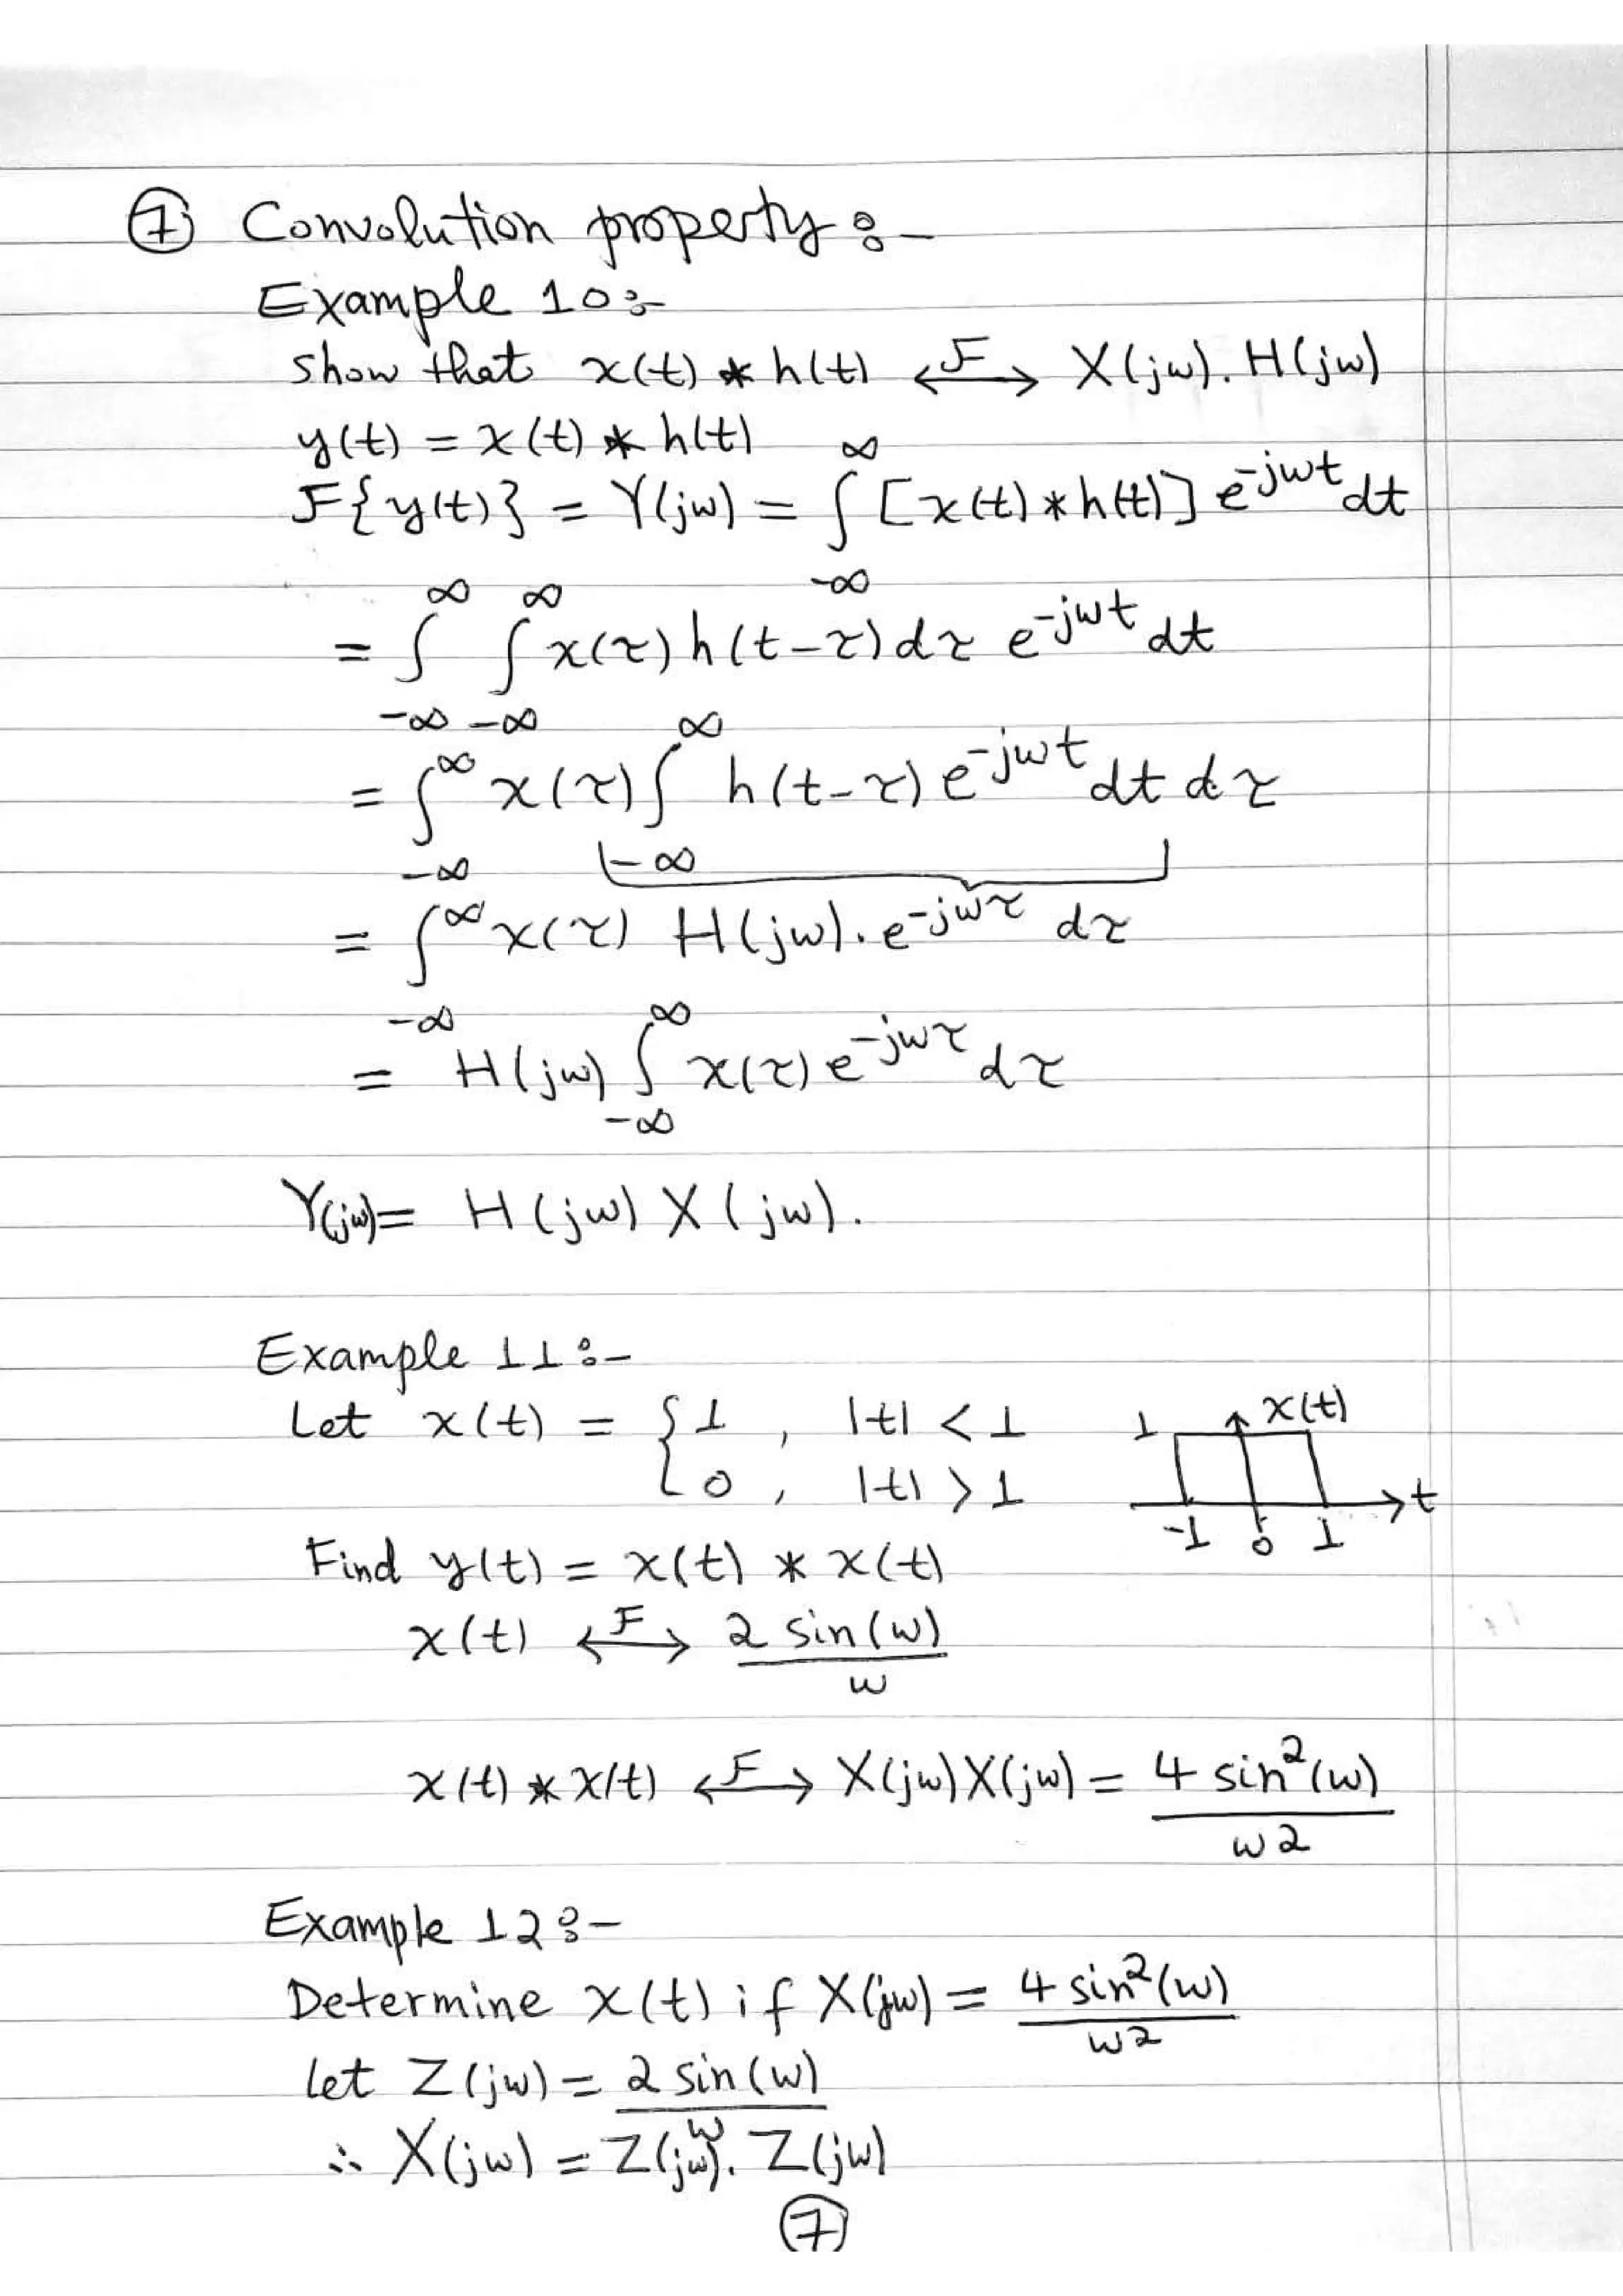 ⑦ Convolution property :-
Example 10 :-
show that x(t) * h(t) ←F→ X(jw). H(jw)
y(t) = x(t) * h(t)
F{y(t)} = Y(jw) = ∫_{-∞}^{∞} [x(t) * h(t)] e^{-jwt} dt
= ∫_{-∞}^{∞} ∫_{-∞}^{∞} x(τ) h(t-τ) dτ e^{-jwt} dt
= ∫_{-∞}^{∞} x(τ) ∫_{-∞}^{∞} h(t-τ) e^{-jwt} dt dτ
= ∫_{-∞}^{∞} x(τ) H(jw). e^{-jwτ} dτ
= H(jw) ∫_{-∞}^{∞} x(τ) e^{-jwτ} dτ
Y(jw) = H(jw) X(jw).
Example 11 :-
Let x(t) = { 1 , |t| < 1
0 , |t| > 1
1 x(t)
t
-1 0 1
Find y(t) = x(t) * x(t)
x(t) ←F→ 2 sin(w) / w
x(t) * x(t) ←F→ X(jw) X(jw) = 4 sin²(w) / w2
Example 12 :-
Determine x(t) if X(jw) = 4 sin²(w) / w2
let Z(jw) = 2 sin(w) / w
∴ X(jw) = Z(jw). Z(jw)
⑦